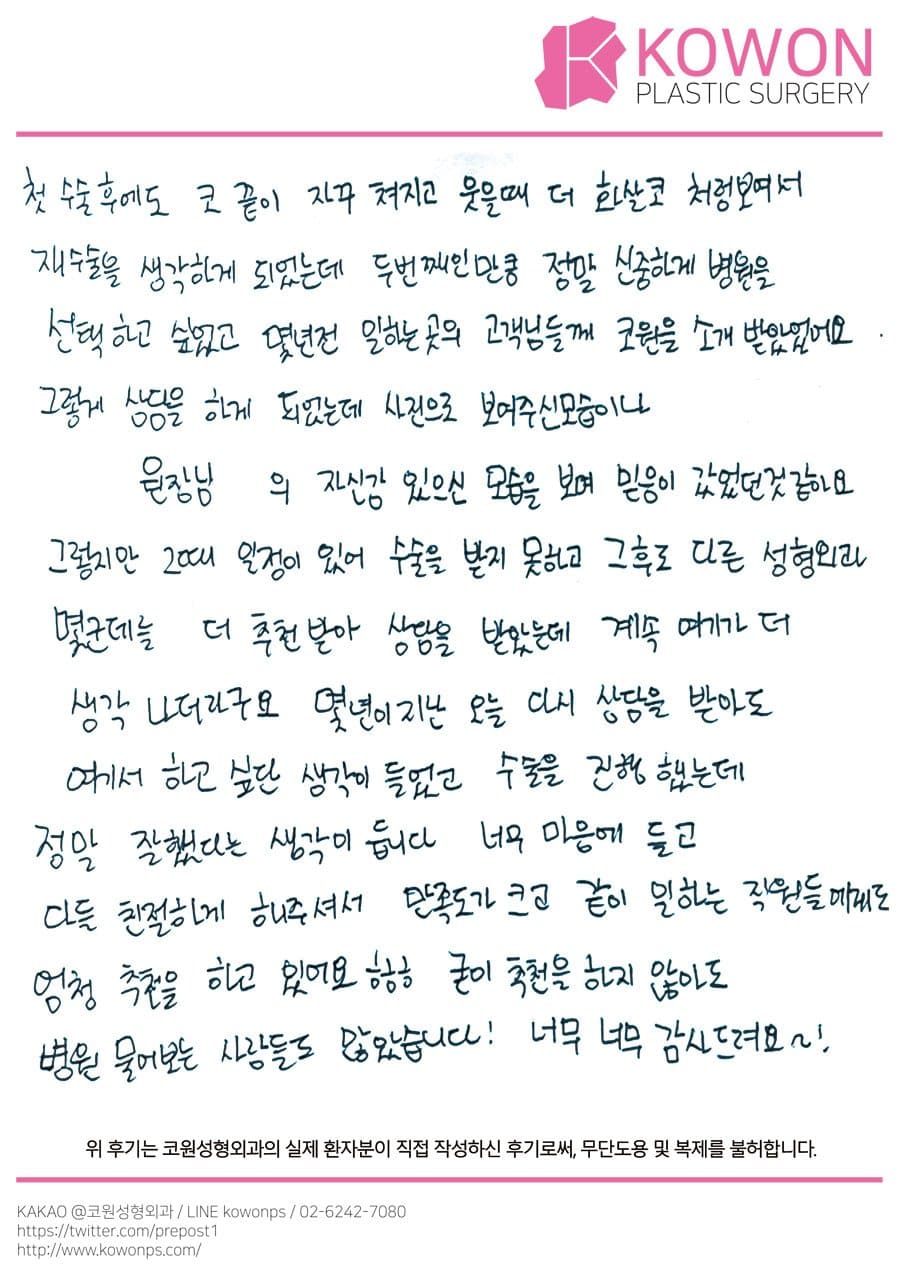 KOWON
PLASTIC SURGERY
첫 수술후에도 코 끝이 자꾸 쳐지고 웃을때 더 화살코 처럼보여서
재수술을 생각하게 되었는데 두번째인만큼 정말 신중하게 병원을
선택하고 싶었고 몇년전 일하는곳의 고객님들께 코원을 소개 받았었어요.
그렇게 상담을 하게 되었는데 사진으로 보여주신모습이나
원장님 의 자신감 있으신 모습을 보며 믿음이 갔었던것같아요
그렇지만 그때 일정이 있어 수술을 받지 못하고 그후로 다른 성형외과
몇군데를 더 추천받아 상담을 받았는데 계속 여기가 더
생각 나더라구요 몇년이지난 오늘 다시 상담을 받아도
여기서 하고 싶단 생각이 들었고 수술을 진행했는데
정말 잘했다는 생각이 듭니다 너무 마음에 들고
다들 친절하게 해주셔서 만족도가 크고 같이 일하는 직원들에게도
엄청 추천을 하고 있어요 하하하 굳이 추천을 하지 않아도
병원 물어보는 사람들도 많았습니다! 너무 너무 감사드려요~!
위 후기는 코원성형외과의 실제 환자분이 직접 작성하신 후기로써, 무단도용 및 복제를 불허합니다.
KAKAO @코원성형외과 / LINE kowonps / 02-6242-7080
https://twitter.com/prepost1
http://www.kowonps.com/